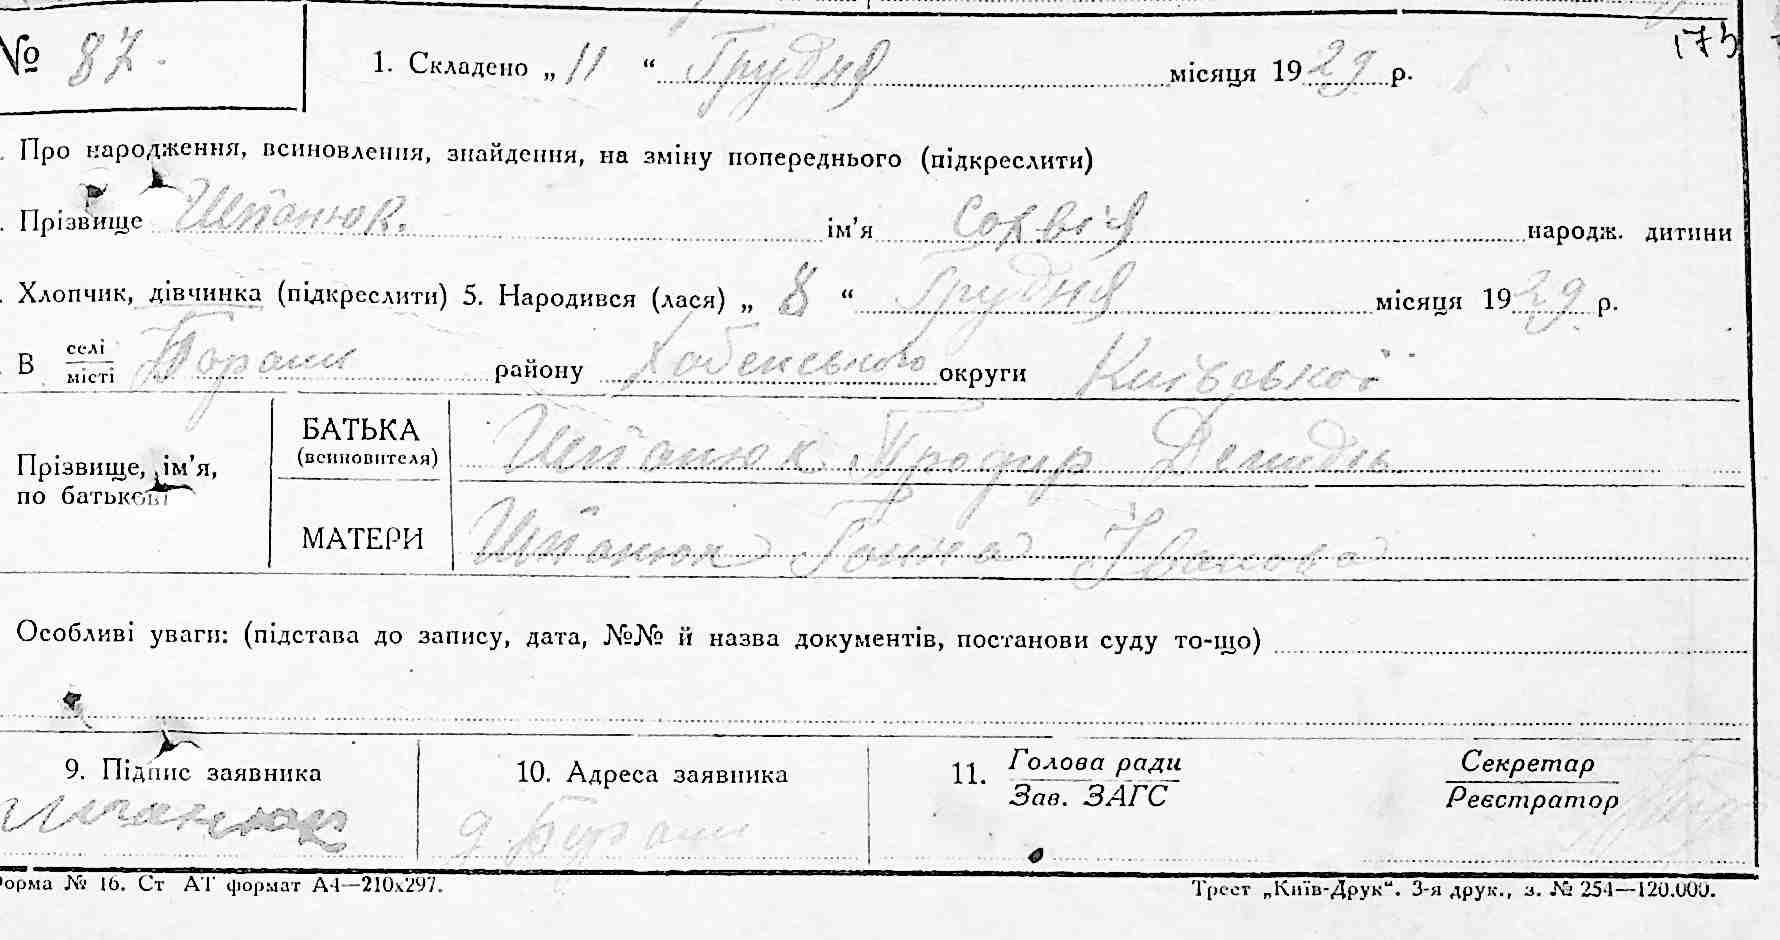 № 87.
1. Складено „ 11 “ Грудня місяця 1929 р.
173
Про народження, всиновлення, знайдення, на зміну попереднього (підкреслити)
Прізвище Шпанюк. ім’я народж. дитини
Хлопчик, дівчинка (підкреслити) 5. Народився (лася) „ 8 “ Грудня місяця 1929 р.
В селі
місті
району Хабенського округи Київської
Прізвище, ім’я,
по батькові
БАТЬКА
(всиновителя)
Шпанюк
МАТЕРИ
Шпанюк Ганна Іванова
Особливі уваги: (підстава до запису, дата, №№ й назва документів, постанови суду то-що)
9. Підпис заявника
Шпанюк
10. Адреса заявника
11. Голова ради
Зав. ЗАГС
Секретар
Реєстратор
Форма № 16. Ст АТ формат А4—210х297.
Трест „Київ-Друк“. 3-я друк., з. № 254—120.000.